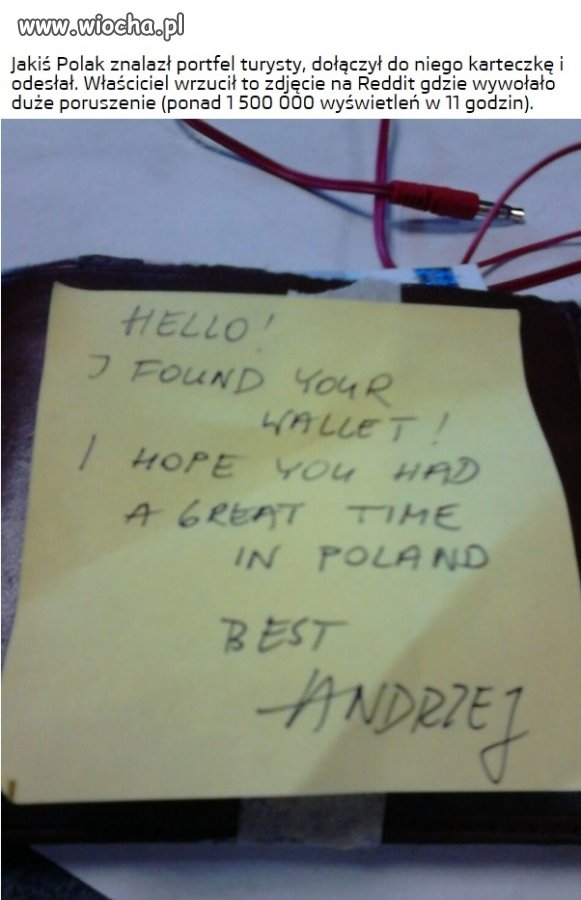 www.wiocha.pl
Jakiś Polak znalazł portfel turysty, dołączył do niego karteczkę i
odesłał. Właściciel wrzucił to zdjęcie na Reddit gdzie wywołało
duże poruszenie (ponad 1 500 000 wyświetleń w 11 godzin).
HELLO!
I FOUND YOUR
WALLET!
I HOPE YOU HAD
A GREAT TIME
IN POLAND
BEST
ANDRZEJ